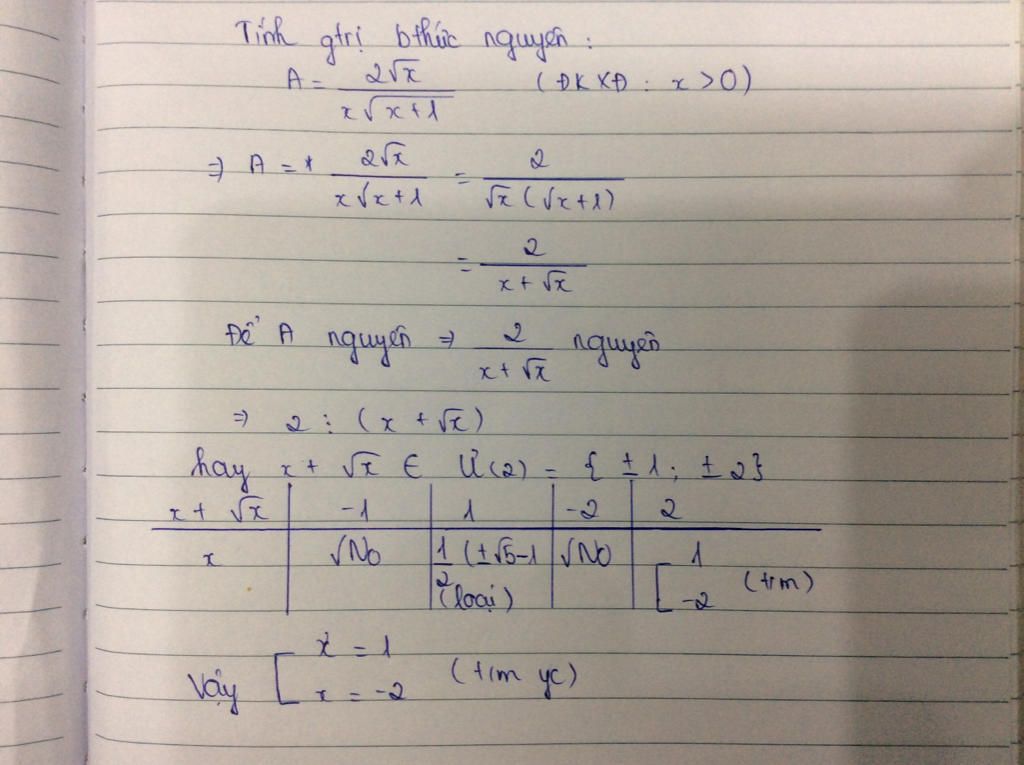 Tính gtrị bthức nguyên :
A = 2√x / x√x+1 (ĐKXĐ : x > 0)
⇒ A = 2√x / x√x+1 = 2 / √x (√x+1)
= 2 / x+√x
Để A nguyên ⇒ 2 / x+√x nguyên
⇒ 2 ⋮ (x + √x)
hay x + √x ∈ Ư(2) = { ± 1 ; ± 2}
x + √x | -1 | 1 | -2 | 2
x | √No | 1/2 (±√5-1 (loại) | √No | [ 1 -2 (t/m)
Vậy [ x = 1
x = -2 (t/m yc)